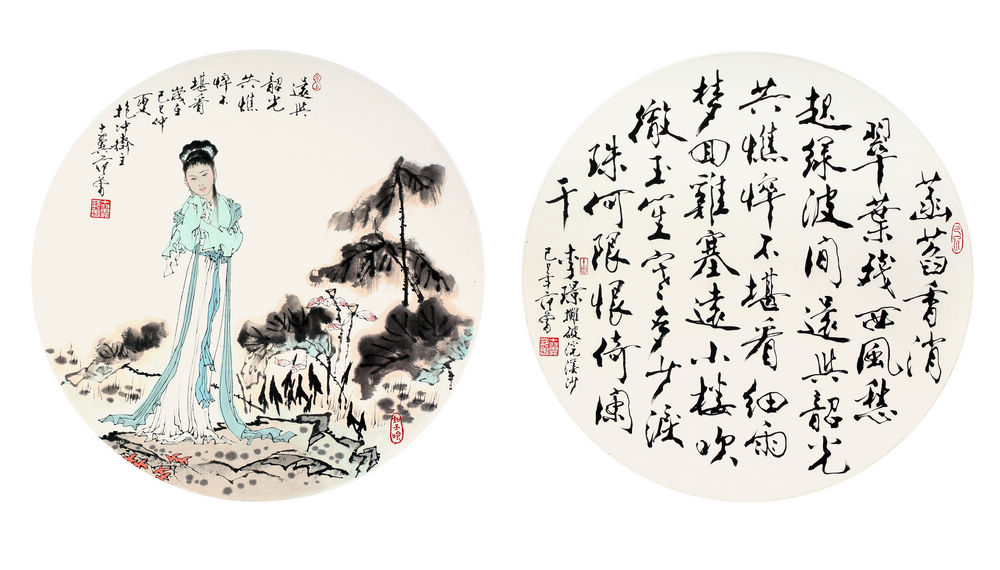 還與
韶光
共憔
悴不
堪看
歲在
己巳仲
夏
抱沖齋主
十翼范曾
菡萏香消
翠葉殘西風愁
起綠波間還與韶光
共憔悴不堪看細雨
夢回雞塞遠小樓吹
徹玉笙寒多少淚
珠何限恨倚闌
干
李璟攤破浣溪沙
己巳年范曾